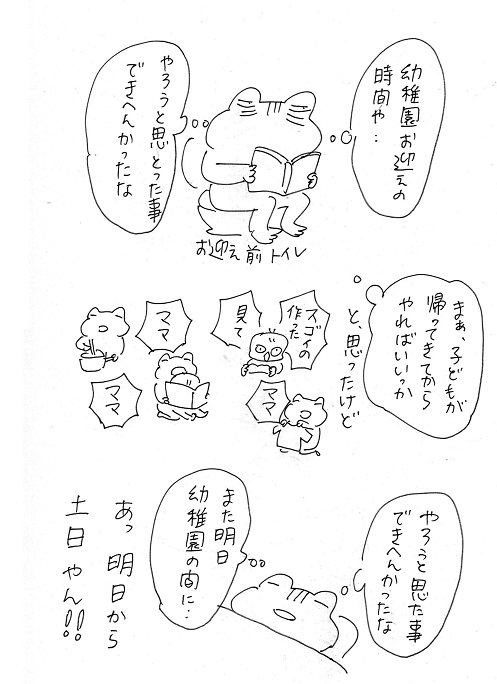 幼稚園お迎えの
時間や…
やろうと思とった事
できへんかったな
お迎え前トイレ
まぁ、子どもが
帰ってきてから
やればいいっか
と、思ったけど
スゴイの
作った
見て
ママ
ママ
ママ
やろうと思た事
できへんかったな
また明日
幼稚園の間に…
あっ 明日から
土日やん!!